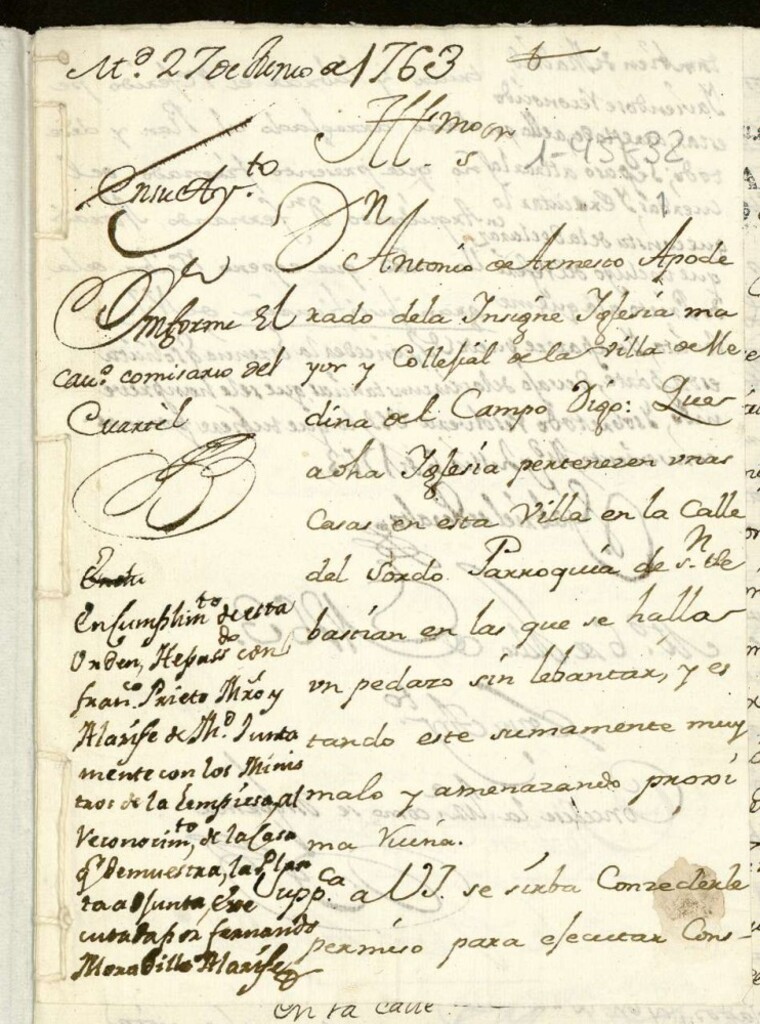 M.d 27 de Junio de 1763
Yllmo Sr
1-45-82
1
En su Ay.to
Dn Antonio de Armesto Apode
rado dela Insigne Iglesia ma
yor y Collesial de la Villa de Me
dina del Campo Digo: Que
a dha Iglesia pertenezen vnas
Casas en esta Villa en la Calle
del Sordo Parroquia de Sn Se
bastian en las que se halla
vn pedazo sin lebantar, y es
tando este sumamente muy
malo y amenazando proxi
ma Ruina.
Supp.ca a VI. se sirba Conzederle
permiso para ejecutar Cons-
Informe El
Cav.o comisario del
Cuartel
En Cumplim.to de esta
Orden, He pass.do con
Fran.co Prieto Mro y
Alarife de M.d Junta
mente con los Minis
tros de la Empresa, al
Reconocim.to de la Casa
q.e demuestra, la Plan
ta adjunta, Exe
cutada por Fernando
Moradillo Alarife
en la Calle